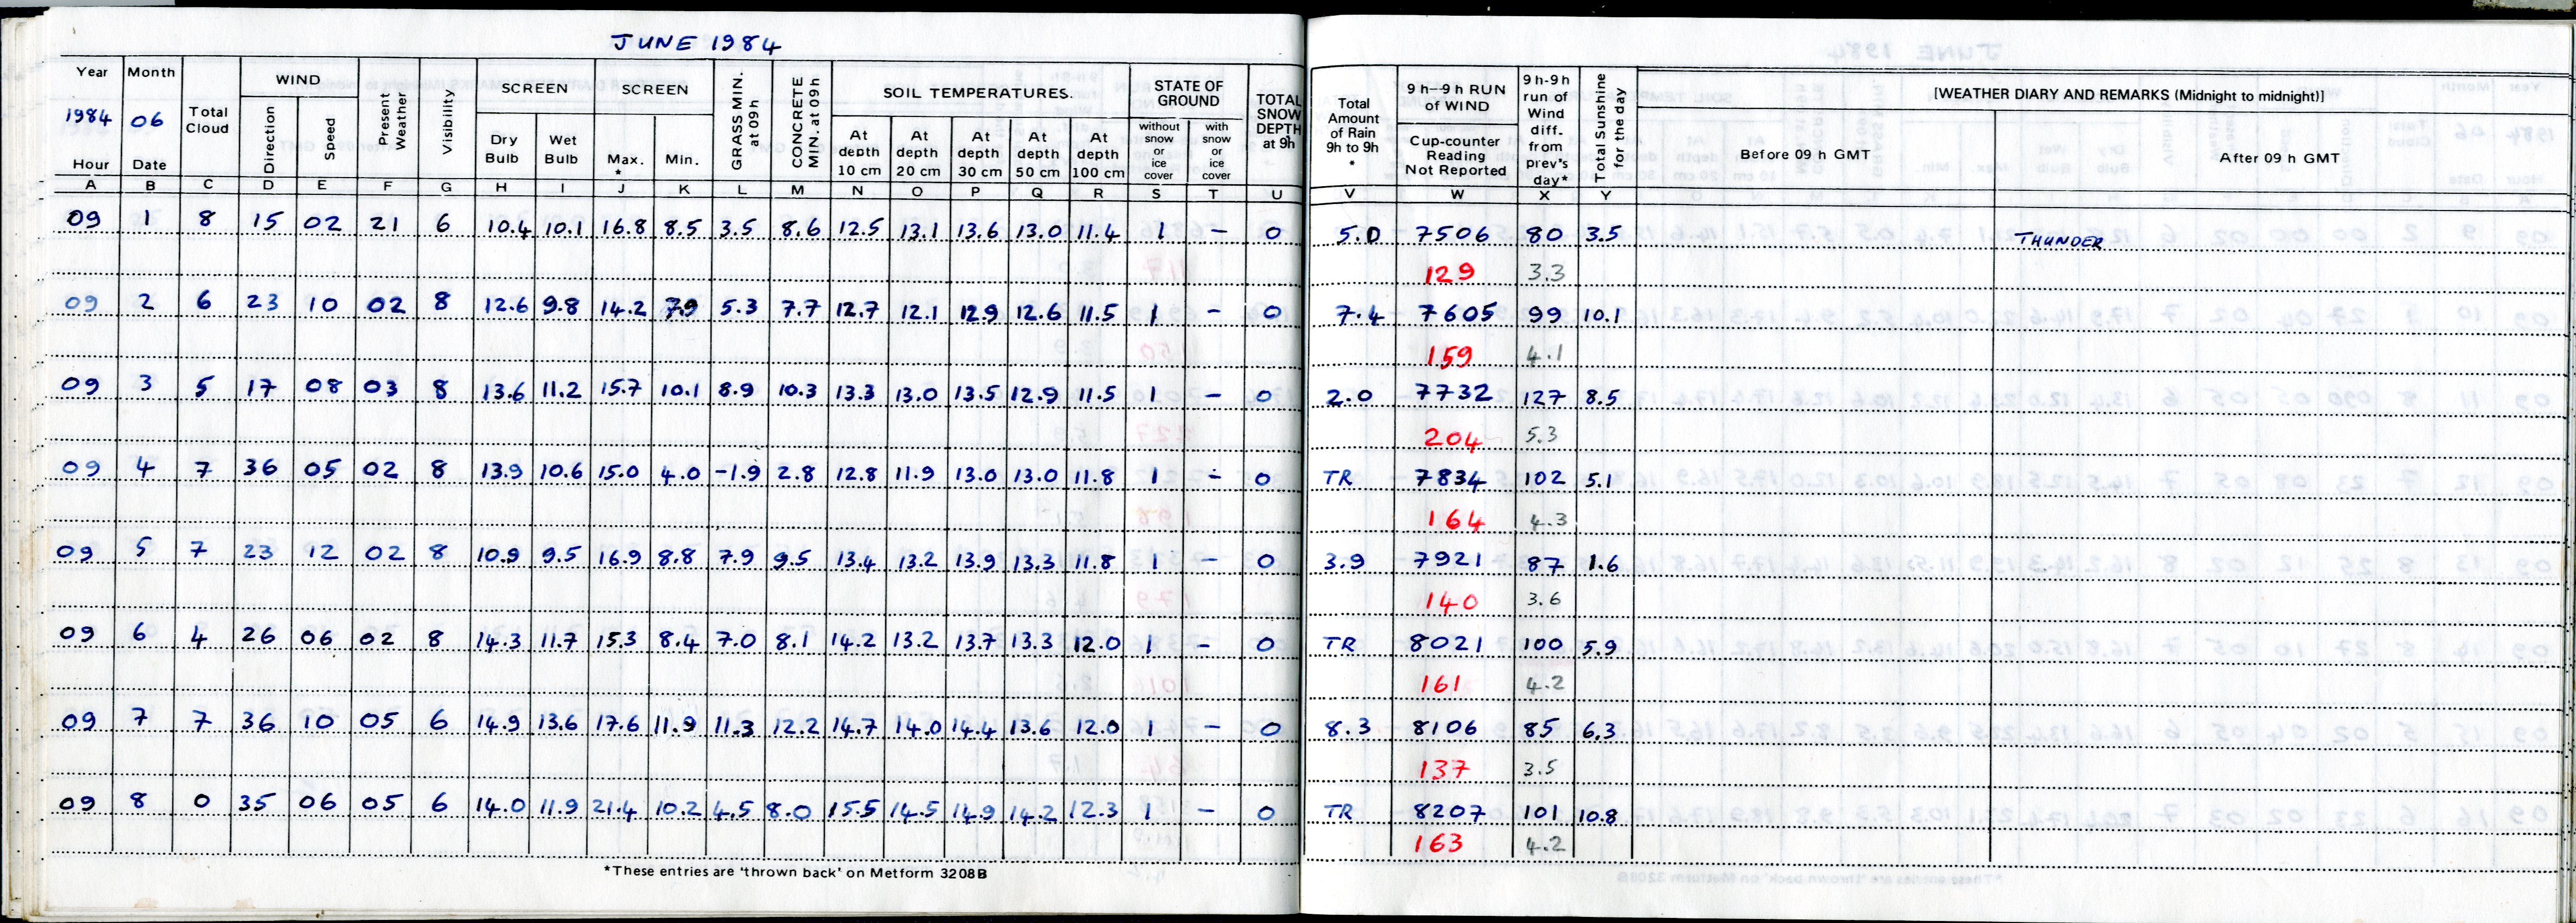 JUNE 1984
Year Month Total Cloud WIND Present Weather Visibility SCREEN SCREEN GRASS MIN. at 09h CONCRETE MIN. at 09h SOIL TEMPERATURES. STATE OF GROUND TOTAL SNOW DEPTH at 9h Total Amount of Rain 9h to 9h * 9 h—9 h RUN of WIND 9 h-9 h run of Wind diff. from prev's day* Total Sunshine for the day [WEATHER DIARY AND REMARKS (Midnight to midnight)]
1984 06 Direction Speed Dry Bulb Wet Bulb Max. * Min. At depth 10 cm At depth 20 cm At depth 30 cm At depth 50 cm At depth 100 cm without snow or ice cover with snow or ice cover Cup-counter Reading Not Reported Before 09 h GMT After 09 h GMT
Hour Date
A B C D E F G H I J K L M N O P Q R S T U V W X Y
09 1 8 15 02 21 6 10.4 10.1 16.8 8.5 3.5 8.6 12.5 13.1 13.6 13.0 11.4 1 – 0 5.0 7506 80 3.5 THUNDER
129 3.3
09 2 6 23 10 02 8 12.6 9.8 14.2 7.9 5.3 7.7 12.7 12.1 12.9 12.6 11.5 1 – 0 7.4 7605 99 10.1
159 4.1
09 3 5 17 08 03 8 13.6 11.2 15.7 10.1 8.9 10.3 13.3 13.0 13.5 12.9 11.5 1 – 0 2.0 7732 127 8.5
204 5.3
09 4 7 36 05 02 8 13.9 10.6 15.0 4.0 -1.9 2.8 12.8 11.9 13.0 13.0 11.8 1 – 0 TR 7834 102 5.1
164 4.3
09 5 7 23 12 02 8 10.9 9.5 16.9 8.8 7.9 9.5 13.4 13.2 13.9 13.3 11.8 1 – 0 3.9 7921 87 1.6
140 3.6
09 6 4 26 06 02 8 14.3 11.7 15.3 8.4 7.0 8.1 14.2 13.2 13.7 13.3 12.0 1 – 0 TR 8021 100 5.9
161 4.2
09 7 7 36 10 05 6 14.9 13.6 17.6 11.9 11.3 12.2 14.7 14.0 14.4 13.6 12.0 1 – 0 8.3 8106 85 6.3
137 3.5
09 8 0 35 06 05 6 14.0 11.9 21.4 10.2 4.5 8.0 15.5 14.5 14.9 14.2 12.3 1 – 0 TR 8207 101 10.8
163 4.2
*These entries are 'thrown back' on Metform 3208B